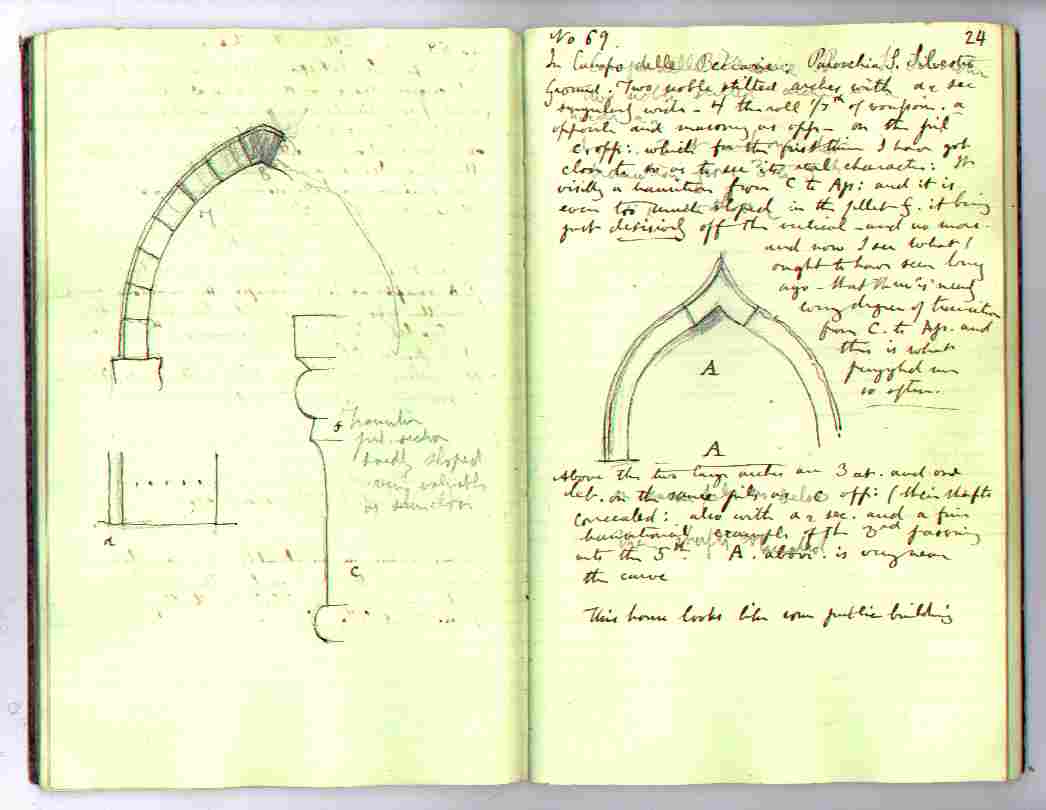 B
transition
pil. section
hardly sloped
very valuable
as
a
C
No 69.
24
In Campo delle Beccarie. Parochia S. Silvestro
Ground. Two noble stilted arches with a 2 sec
singularly wide - 4 the roll 1/7th of voussoir. a
opposite and masonry as opp - on the pil
C opp: which for the first time I have got
close to so as to see its real character: It is
visibly a transition from C to Aps: and it is
even too much sloped in the fillet G. it being
just decisively off the vertical - and no more.
and now I see what I
ought to have seen long
ago - that there is nearly
every degree of transition
from C. to Aps. and
this is what
puzzled me
so often.
A
A
Above the two large arches are 3 at. and one
deb. on the same pils as C opp: (their shafts
concealed: also with a 2 sec. and a fine
transitional example of the 3rd passing
into the 5th. A. above is very near
the curve
This house looks like some public building